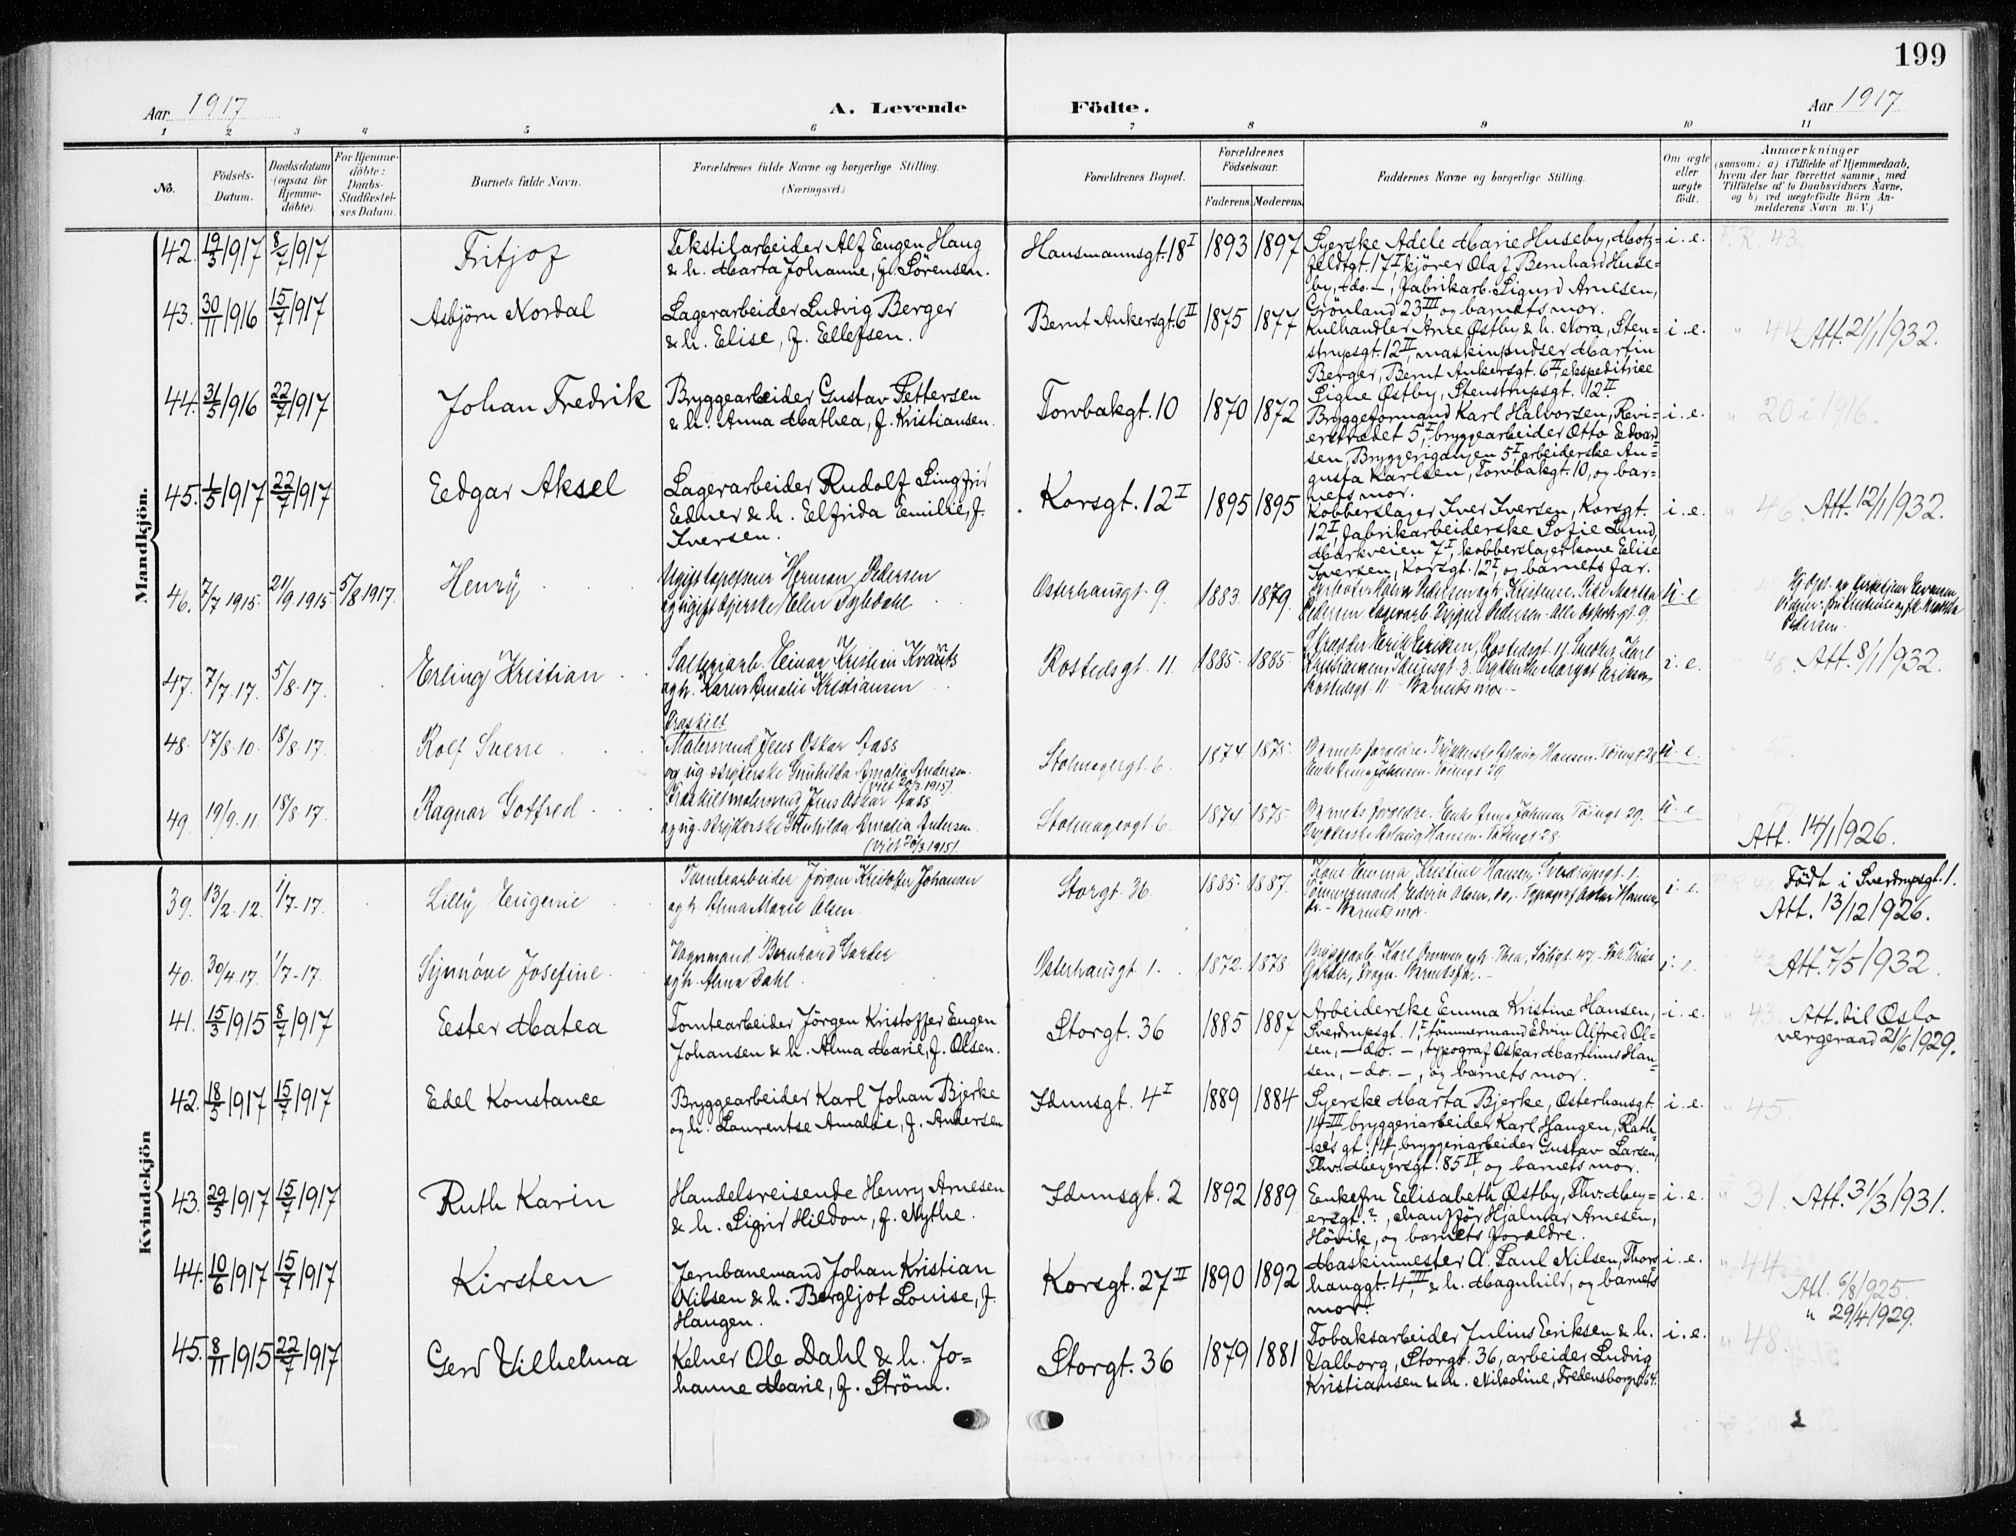 199
Aar 1917 A. Levende Födte. Aar 1917
1 2 3 4 5 6 7 8 9 10 11
No.
Födsels-
Datum.
Daabsdatum
(ogsaa for
Hjemme-
döbte).
For Hjemme-
döbte:
Daabs-
Stadfæstel-
ses Datum.
Barnets fulde Navn.
Forældrenes fulde Navne og borgerlige Stilling.
(Næringsvei.)
Forældrenes Bopæl.
Forældrenes
Födselsaar.
Faderens. Moderens.
Faddernes Navne og borgerlige Stilling.
Om ægte
eller
uægte
födt.
Anmærkninger
(saasom: a) i Tilfælde af Hjemmedaab,
hvem der har forrettet samme, med
Tilföielse af to Daabsvidners Navne,
og b) ved uægtefödte Börn An-
melderens Navn m. V.)
Mandkjön.
42. 19/5 1917 8/7 1917 Fritjof
Tekstilarbeider Alf Eugen Haug
& h. Marta Johanne, f. Sörensen.
Hausmannsgt. 18 I 1893 1897
Syerske Adele Marie Huseby, Motz-
feldtgt. 17 I, kjörer Olaf Bernhard Huse-
by, -do.-, fabrikarb. Sigurd Arnesen,
Grönland 23 III og barnets mor.
i. e. F.R. 43.
43. 30/11 1916 15/7 1917 Asbjörn Nordal
Lagerarbeider Ludvig Berger
& h. Elise, f. Ellefsen.
Bernt Ankersgt. 6 II 1875 1877
Kulhandler Arne Østby & h. Nora, Sten-
strupsgt. 12 II, maskinpudser Martin
Berger, Bernt Ankersgt. 6 II, ekspeditrice
Signe Østby, Stenstrupsgt. 12 II.
i. e. " 44 Att. 21/1 1932.
44. 31/5 1916 22/7 1917 Johan Fredrik
Bryggearbeider Gustav Pettersen
& h. Anna Mathea, f. Kristiansen.
Torvbakgt. 10 1870 1872
Bryggeformand Karl Halvorsen, Revi-
erstrædet 5 I, bryggearbeider Otto Edvard-
sen, Bryggerigangen 5 I, arbeiderske Au-
gusta Karlsen, Torvbakgt. 10, og bar-
nets mor.
i. e. " 20 i 1916.
45. 1/5 1917 22/7 1917 Edgar Aksel
Lagerarbeider Rudolf Singfrid
Edner & h. Elfrida Emilie, f.
Iversen.
Korsgt. 12 I 1895 1895
Kobberslager Iver Iversen, Korsgt.
12 I, fabrikarbeiderske Sofie Lund,
Markveien 7 I, kobberslagerkone Elise
Iversen, Korsgt. 12 I, og barnets far.
i. e. " 46. Att. 12/1 1932.
46. 7/7 1915. 21/9 1915 5/8 1917. Henry
Ugift Herman Pedersen
og ugift syerske Elen
Osterhausgt 9. 1883. 1879.
Pedersen. Lagerarb. Trygve Pedersen. Alle Osterh.gt. 9.
u. e
Pedersen.
47. 7/7. 17. 5/8. 17. Erling Kristian
Einar Kristian
og h. Karen Amalie Kristiansen
Rostedsgt. 11. 1885. 1885.
Skrædder Erik Eriksen, Rostedsgt. 11. Karl
Kristiansen, 3. Margot Eriksen,
Rostedsgt. 11 - Barnets mor -
i. e. " 48. Att. 8/1 1932.
48. 17/8. 10. 18/8. 17. Rolf Sverre
Fraskilt
Malersvend Jens Oskar Aass
og ug. strykerske Gunhilda Amalia Andersen.
(viet 20/3. 1915).
Stolmagergt. 6. 1874 1875.
Barnets forældre. Aslaug Hansen. 28
Enke Anna Johansen. 29
u. e
49. 19/9. 11. 18/8. 17. Ragnar Gotfred
Fraskilt malersvend Jens Oskar Aass
og ug. strykerske Gunhilda Amalia Andersen.
(viet 20/3. 1915).
Stolmagergt 6. 1874 1875.
Barnets forældre. Enke Anna Johansen, 29.
Aslaug Hansen. 28.
u. e
Att. 14/1 1926.
Kvindekjön
39. 13/2. 12. 1/7- 17. Lilly Eugenie
Tomtearbeider Jörgen Kristoffer Johansen
og h. Alma Marie Olsen.
Storgt. 36. 1885. 1887.
Kone Emma Kristine Hansen, Sverdrupsgt. 1.
Tömmermand Edvin Olsen, do., Typograf Oskar Hansen,
do. - Barnets mor.
i. e. F R 41. Födt i Sverdrupsgt. 1.
Att. 13/12 1926.
40. 30/4. 17. 1/7- 17. Synnöve Josefine.
Vognmand Bernhard Garder
og h. Alma Dahl.
Osterhausgt. 1. 1872. 1878.
Garder, Barnets far.
i. e. Att. 7/5 1932.
41. 15/3 1915 8/7 1917 Ester Matea
Tomtearbeider Jörgen Kristoffer Eugen
Johansen & h. Alma Marie, f. Olsen.
Storgt. 36 1885 1887
Arbeiderske Emma Kristine Hansen,
Sverdrupsgt. 1 I, tömmermand Edvin Alfred Ol-
sen, -do.-, typograf Oskar Martinus Han-
sen, -do.-, og barnets mor.
i. e. " 43. Att. til Oslo
vergeraad 21/6 1929.
42. 18/5 1917 15/7 1917 Edel Konstance
Bryggearbeider Karl Johan Bjerke
og h. Laurentse Amalie, f. Andersen
Idunsgt. 4 I 1889 1884
Syerske Marta Bjerke, Osterhausgt.
14 III, bryggeriarbeider Karl Haugen, Rath-
kes gt. 14, bryggeriarbeider Gustav Larsen,
Thv. Meyersgt. 85 IV, og barnets mor.
i. e. " 45.
43. 29/5 1917 15/7 1917 Ruth Karin
Handelsreisende Henry Arnesen
& h. Sigrid Hildon, f. Nythe.
Idunsgt. 2 1892 1889
Enkefru Elisabeth Østby, Thv. Mey-
ersgt. ?, chaufför Hjalmar Arnesen,
Hövik, og barnets forældre.
i. e. " 31. Att. 31/3 1931.
44. 10/6 1917 15/7 1917 Kirsten
Jernbanemand Johan Kristian
Nilsen & h. Bergljot Louise, f.
Haugen.
Korsgt. 27 II 1890 1892
Maskinmester A. Paul Nilsen, Thors-
hauggt. 4 III & h. Magnhild, og barnets
mor.
i. e. " 44
Att. 6/8 1925.
" 29/4 1929.
45. 8/11 1915 22/7 1917 Gerd Vilhelma
Kelner Ole Dahl & h. Jo-
hanne Marie, f. Ström.
Storgt. 36 1879 1881
Tobaksarbeider Julius Eriksen & h.
Valborg, Storgt. 36, arbeider Ludvig
Kristiansen & h. Nikoline, Fredensborgv. 64.
i. e. " 48.